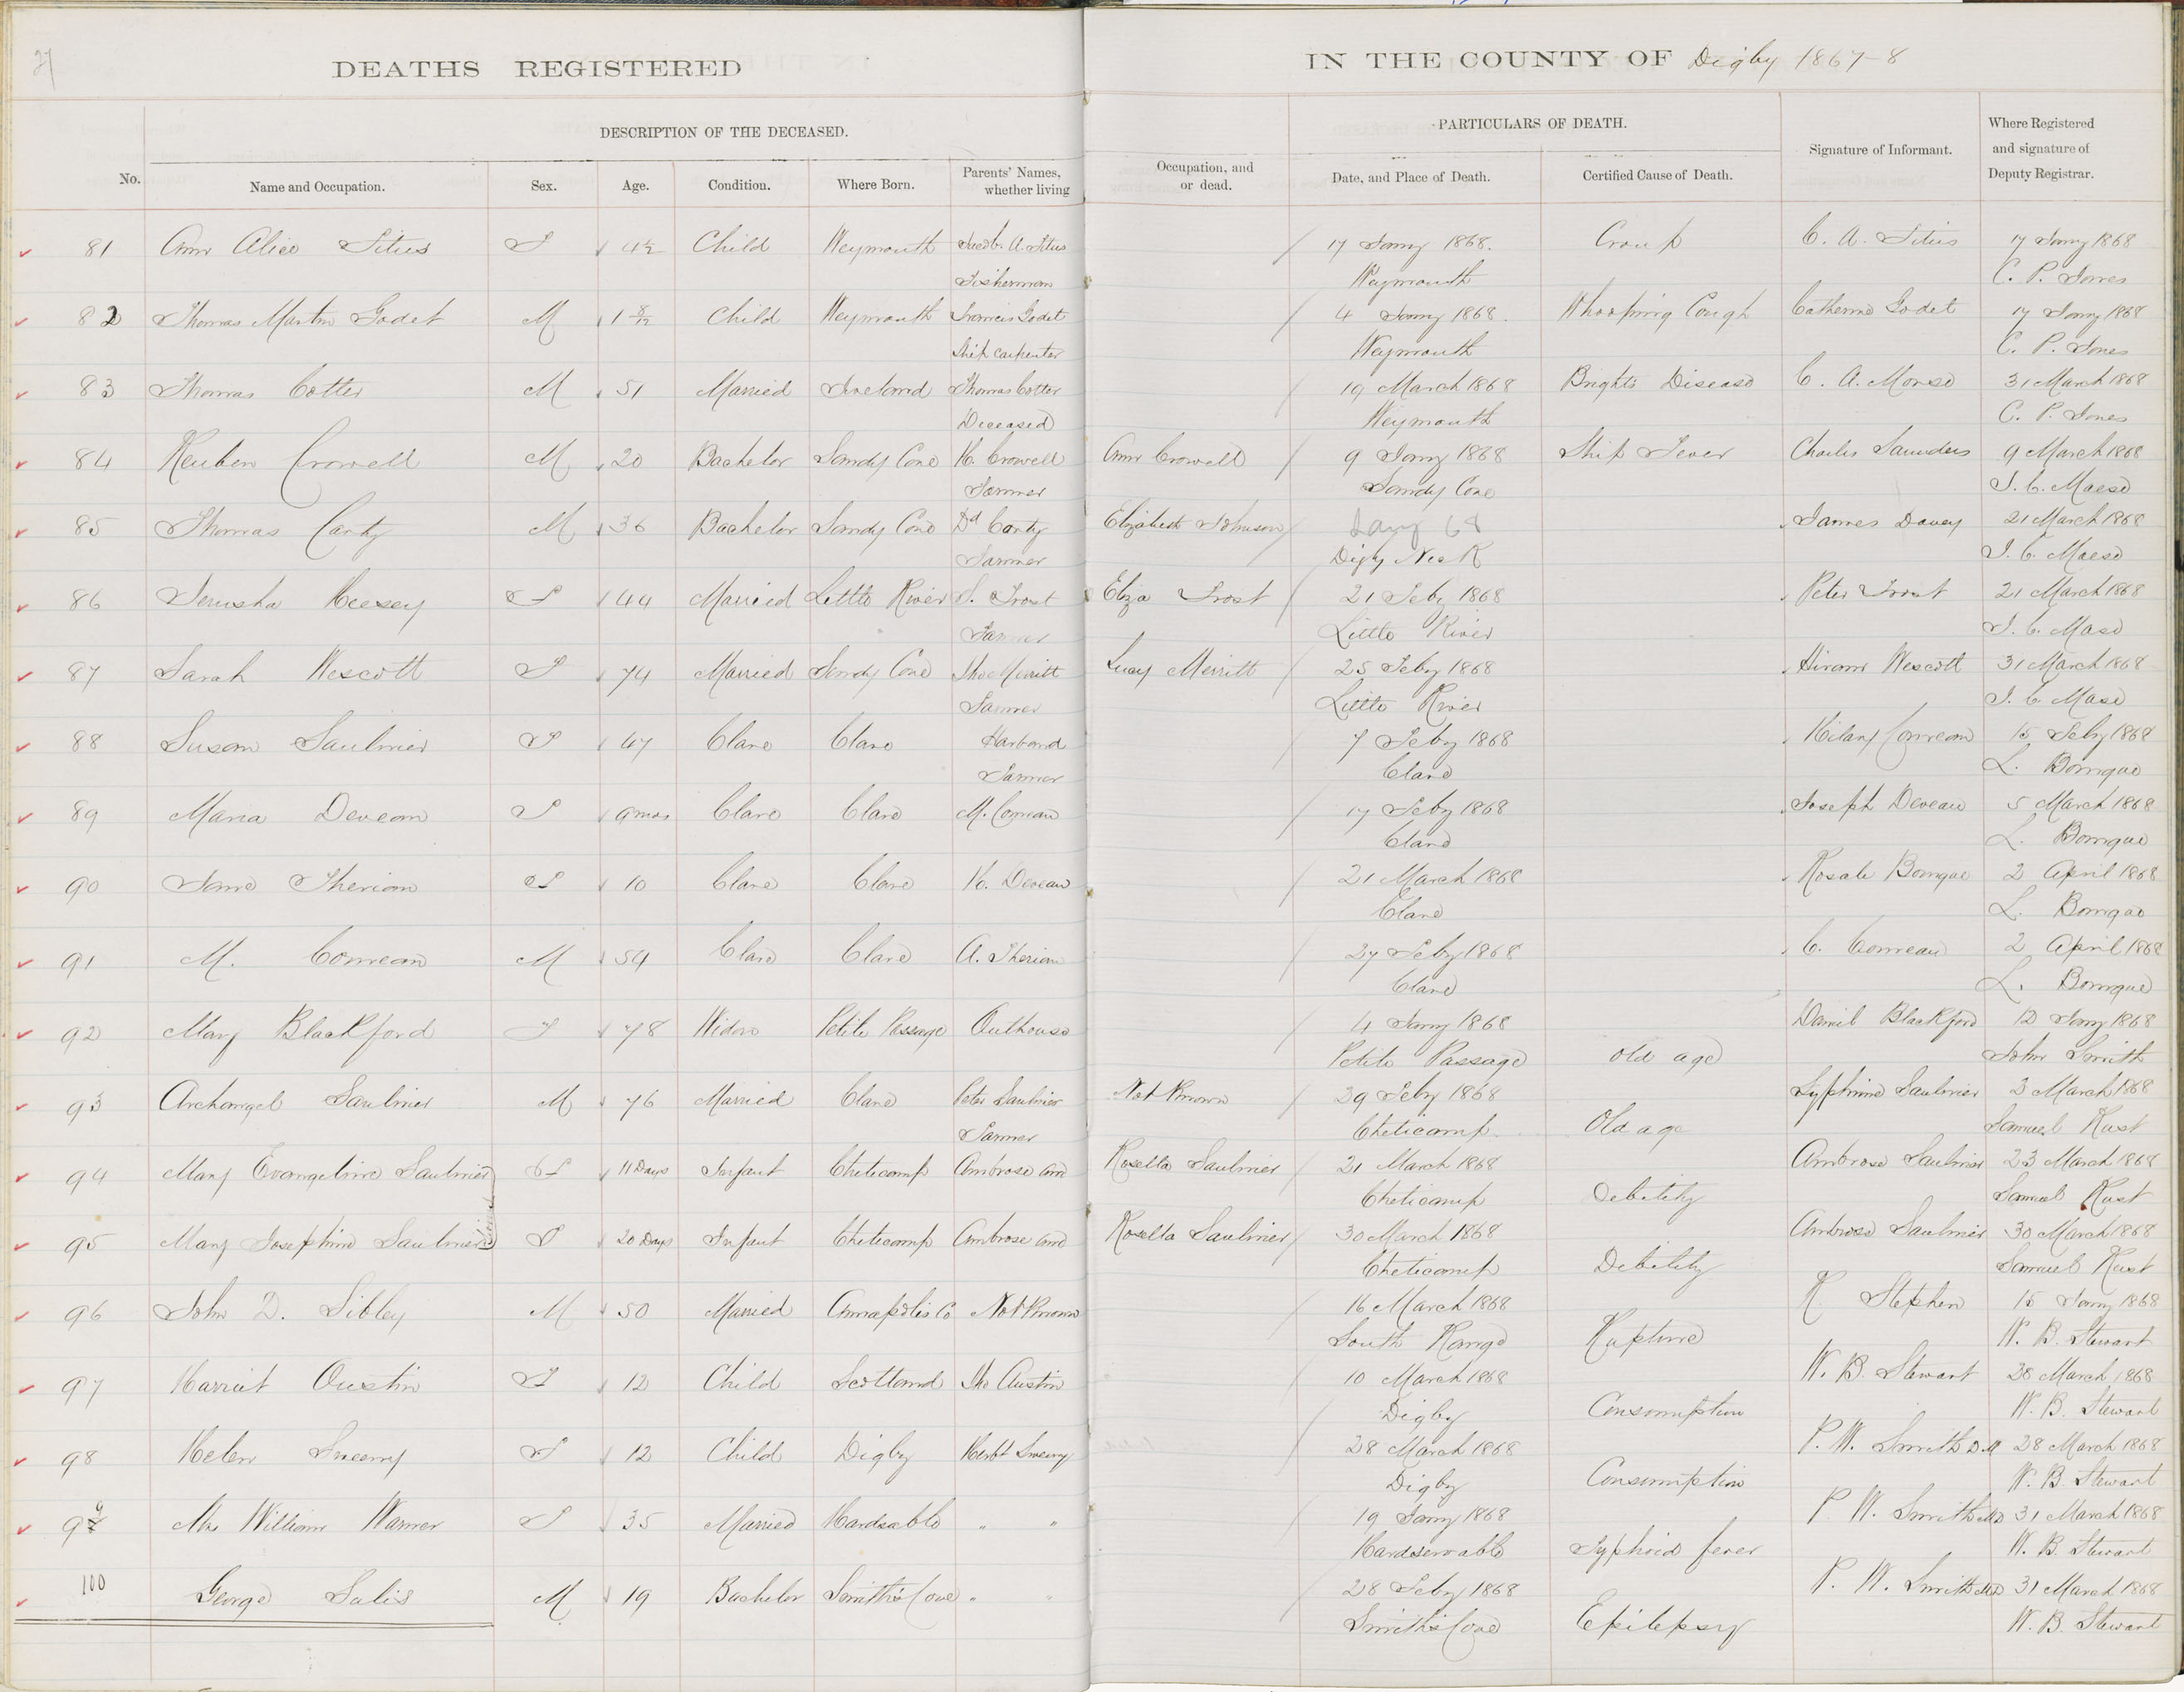 27
DEATHS REGISTERED IN THE COUNTY OF Digby 1867-8
DESCRIPTION OF THE DECEASED. PARTICULARS OF DEATH.
No. Name and Occupation. Sex. Age. Condition. Where Born. Parents' Names, whether living Occupation, and or dead. Date, and Place of Death. Certified Cause of Death. Signature of Informant. Where Registered and signature of Deputy Registrar.
81 Ann Alice Titus F 4½ Child Weymouth Jacob A. Titus 17 Jany 1868. Croup C. A. Titus 17 Jany 1868
Fisherman Weymouth C. P. Jones
82 Thomas Martin Godet M 1 8/12 Child Weymouth Francis Godet 4 Jany 1868. Whooping Cough Catherine Godet 17 Jany 1868
Ship Carpenter Weymouth C. P. Jones
83 Thomas Cotter M 51 Married Ireland Thomas Cotter 19 March 1868 Brights Disease C. A. Morse 31 March 1868
Deceased Weymouth C. P. Jones
84 Reuben Crowell M 20 Bachelor Sandy Cove H. Crowell Ann Crowell 9 Jany 1868 Ship Fever Charles Saunders 9 March 1868
Farmer Sandy Cove J. C. Maese
85 Thomas Carty M 36 Bachelor Sandy Cove Dd Carty Elizabeth Johnson Jany 68 James Davey 21 March 1868
Farmer Digby Neck J. C. Maese
86 Jerusha Heesey F 44 Married Little River S. Frost Eliza Frost 21 Feby 1868 Peter Frost 21 March 1868
Farmer Little River J. C. Mase
87 Sarah Wescott F 74 Married Sandy Cove Thos Merritt Lucy Merritt 25 Feby 1868 Hiram Wescott 31 March 1868
Farmer Little River J. C. Mase
88 Susan Saulnier F 47 Clare Clare Harband 7 Feby 1868 Hilany Comeau 15 Feby 1868
Farmer Clare L. Bourque
89 Maria Deveau F 9 mos Clare Clare M. Comeau 17 Feby 1868 Joseph Deveau 5 March 1868
Clare L. Bourque
90 Jane Theriau F 10 Clare Clare H. Deveau 21 March 1868 Rosale Bourque 2 April 1868
Clare L. Bourque
91 M. Comeau M 59 Clare Clare A. Theriau 27 Feby 1868 C. Comeau 2 April 1868
Clare L. Bourque
92 Mary Blackford F 78 Widow Petite Passage Outhouse 4 Jany 1868 Daniel Blackford 12 Jany 1868
Petite Passage Old age John Smith
93 Archangel Saulnier M 76 Married Clare Peter Saulnier Not Known 29 Feby 1868 Syphrine Saulnier 3 March 1868
Farmer Cheticamp Old age Samuel Rust
94 Mary Evangeline Saulnier F 11 Days Infant Cheticamp Ambrose and Rosella Saulnier 21 March 1868 Ambrose Saulnier 23 March 1868
Cheticamp Debility Samuel Rust
95 Mary Josephine Saulnier F 20 Days Infant Cheticamp Ambrose and Rosella Saulnier 30 March 1868 Ambrose Saulnier 30 March 1868
Cheticamp Debility Samuel Rust
96 John D. Sibley M 50 Married Annapolis Co Not Known 16 March 1868 R Stephen 15 Jany 1868
South Range Rupture W. B. Stewart
97 Harriet Austin F 12 Child Scotland Thos Austin 10 March 1868 W. B. Stewart 28 March 1868
Digby Consumption W. B. Stewart
98 Helen Sweeny F 12 Child Digby Herbt Sweeny 28 March 1868 P. W. Smith 28 March 1868
Digby Consumption W. B. Stewart
99 Mrs William Warner F 35 Married Hardscable " " 19 Jany 1868 P. W. Smith MD 31 March 1868
Typhoid fever W. B. Stewart
100 George Salis M 19 Bachelor Smith's Cove " " 28 Feby 1868 P. W. Smith MD 31 March 1868
Smith's Cove Epilepsy W. B. Stewart